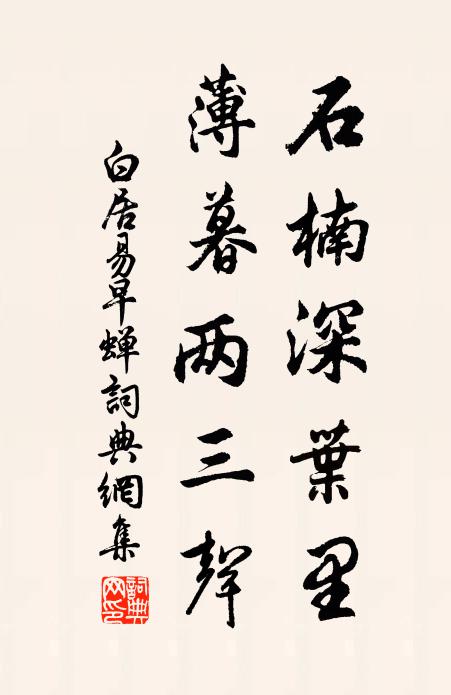 石楠深葉里
薄暮两三聲
白居易早蟬詞典網集
詞典
网印